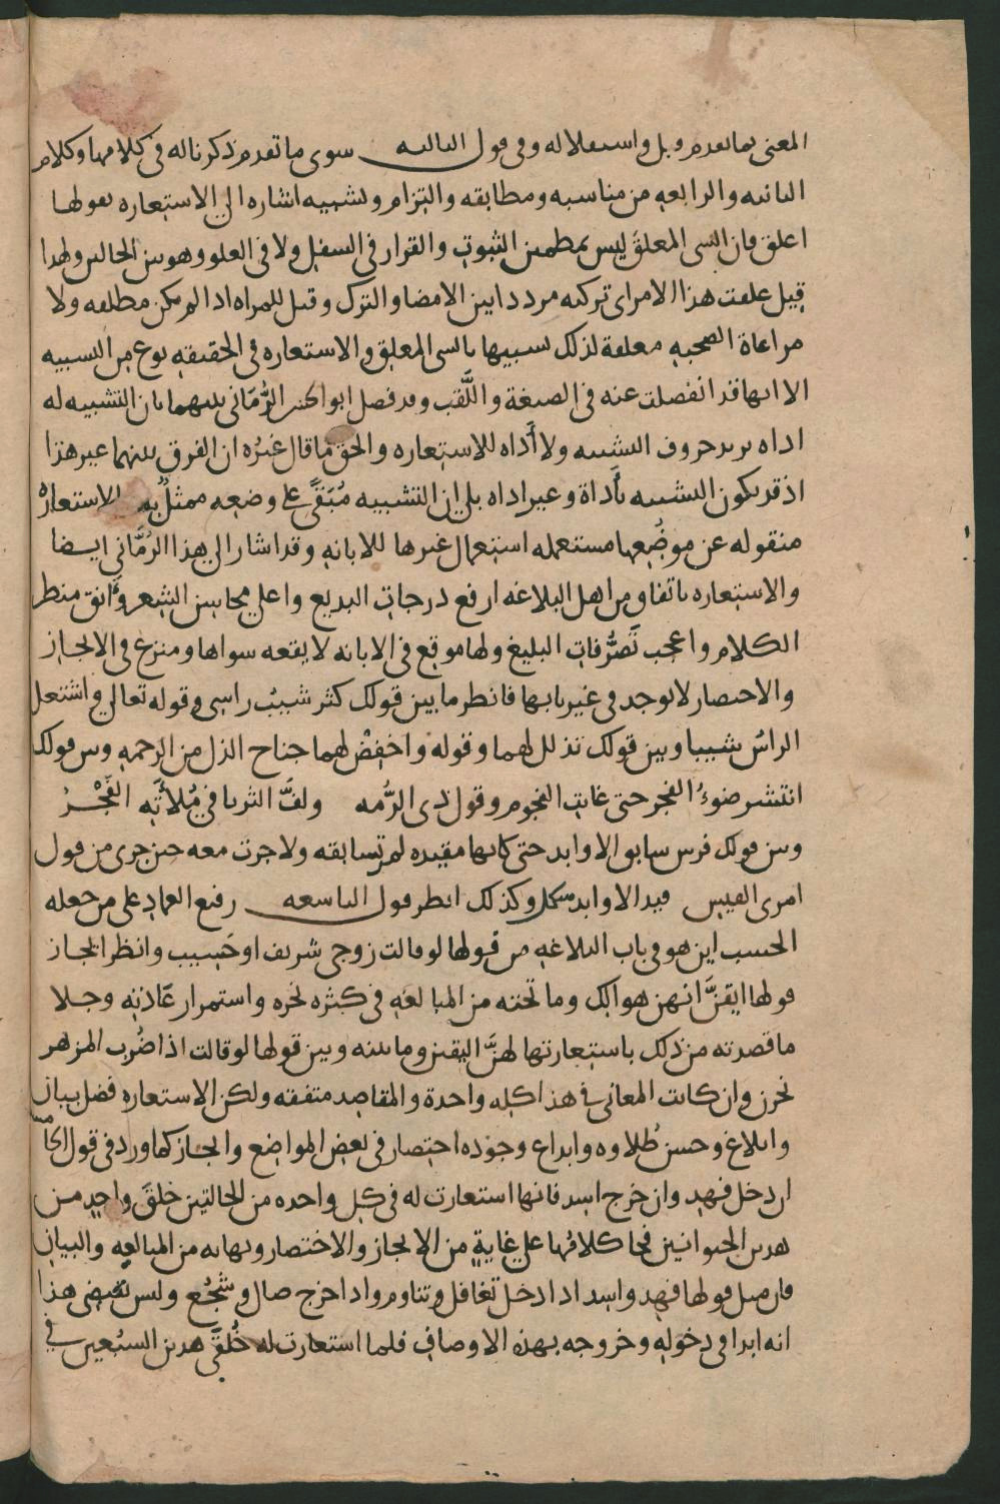 المعنى بما تقدم قبل واستقلاله وفي قول الثالثه سوى ما تقدم ذكرنا له في كلامها وكلام
الثانيه والرابعه من مناسبه ومطابقه والتزام وتشبيه اشاره الى الاستعاره بقولها
اعلق فان الشى المعلق ليس بمطمين الثبوت والقرار في السفل ولا في العلو وهو بين الحالين ولهذا
قيل علقت هذا الامر اى تركته مرددا بين الامضا والترك وقيل للمراه اذا لم تكن مطلقه ولا
مراعاة الصحبه معلقة لذلك تشبيها بالشى المعلق والاستعاره في الحقيقه نوع من التشبيه
الا انها قد انفصلت عنه في الصيغة واللَّقب وقد فصل ابو الحسن الرُّمّانى بينهما بان التشبيه له
اداه يريد حروف التشبيه ولا أَداه للاستعاره والحق ما قال غيرُه ان الفرق بينهما غير هذا
اذ قد يكون التشبيه بأَداة وغير اداه بل ان التشبيه مُبَقًّى على وضعه ممثلٌ به والاستعارة
منقوله عن موضعها مستعمله استعمال غيرها للابانه وقد اشار الى هذا الرُّمَّاني ايضا
والاستعاره باتفاق من اهل البلاغه ارفع درجات البديع واعلى محاسن الشعر وأنق منظر
الكلام واعجب تَصَرُّفات البليغ ولها موقع في الابانه لا يقعه سواها ومنزع في الايجاز
والاختصار لا يوجد في غير بابها فانظر ما بين قولك كثر شيبُ راسى وقوله تعالى واشتعل
الراسُ شيبا وبين قولك تذلل لهما وقوله واخفِضْ لهما جناح الذل من الرحمه وبين قولك
انتشر ضوءُ الفجر حتى غابت النجوم وقول ذى الرُّمه ولفَّ الثريا في مُلأَتِه الفَجْرُ
وبين قولك فرس سابق الاوابد حتى كانها مقيده لم تسابقه ولا جرت معه حين جرى من قول
امرى القيس قيد الاوابد هيكل وكذلك انظر قول التاسعه رفيع العماد على من جعله
الحسب اين هو في باب البلاغه من قولها لو قالت زوجى شريف او حَسِيب وانظر ايجاز
قولها ايقنَّ انهن هوالك وما تحته من المبالغه في كثره نحره واستمرار عَادَتِه وجلا
ما قصدته من ذلك باستعارتها لهنَّ اليقين وما بينه وبين قولها لو قالت اذا ضُرب المزهر
نحرن وان كانت المعاني في هذا كله واحدة والمقاصد متفقه ولكن الاستعاره فضل بيان
وابلاغ وحسن طُلاوه وابداع وجَوْده اختصار في بعض المواضع وايجاز كما ورد في قول
ان دخل فهد وان خرج اسد فانها استعارت له في كل واحده من الحالتين خلق واحد من
هدىن الحيوانين فجا كلامُها على غايةٍ من الايجاز والاختصار ونهايه من المبالغه والبيان
فان قيل قولها فهد واسد اذا دخل تغافل وتناوم واذا خرج صال وشَجُع وليس يقتضى هذا
انه ابدا في دخوله وخروجه بهذه الاوصاف فلما استعارت له خُلُقَى هذين السبُعين في